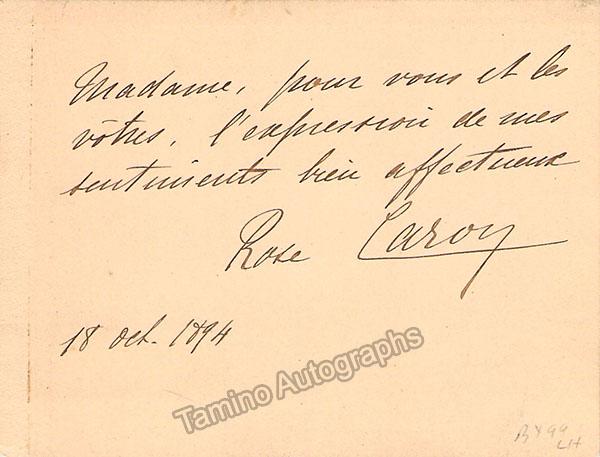 Madame, pour vous et les
vôtres, l'expression de mes
sentiments bien affectueux
Rose Caron
18 oct. 1894
Tamino Autographs